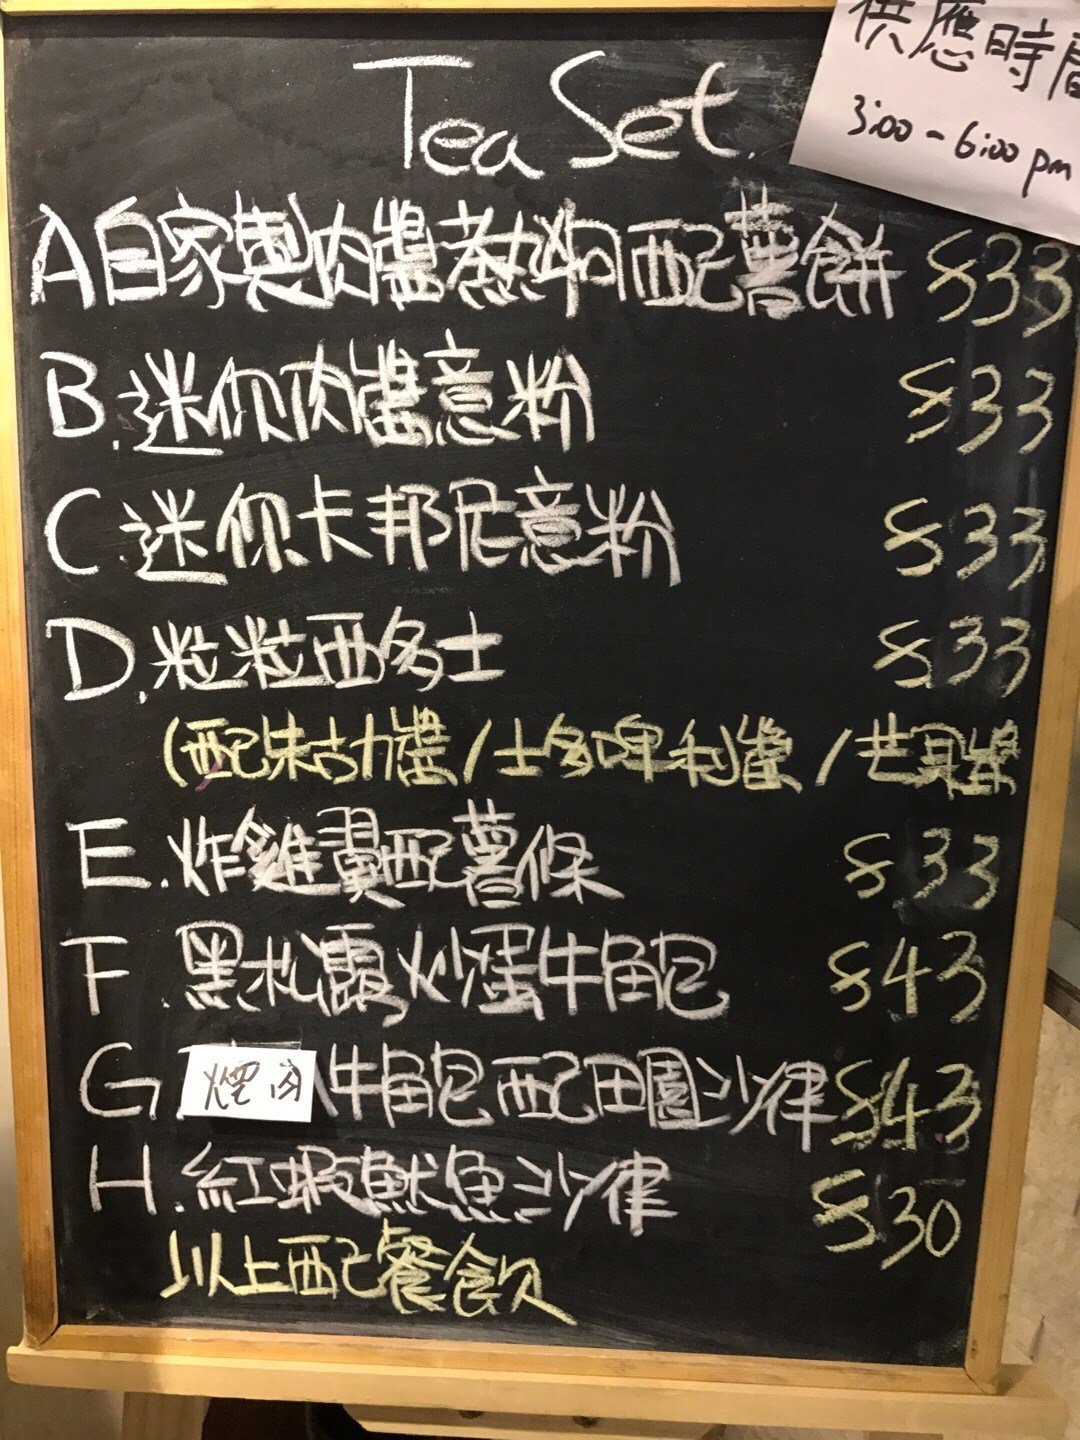 供應時間
3:00-6:00 pm
Tea Set.
A 自家製肉醬熱狗配薯餅 $33
B. 迷你肉醬意粉 $33
C. 迷你卡邦尼意粉 $33
D. 粒粒西多士 $33
(配朱古力醬/士多啤利醬/芒果醬
E. 炸雞翼配薯條 $33
F. 黑松露炒蛋牛角包 $43
G. 煙肉 牛角包配田園沙律 $43
H. 紅蝦魷魚沙律 $30
以上配餐飲